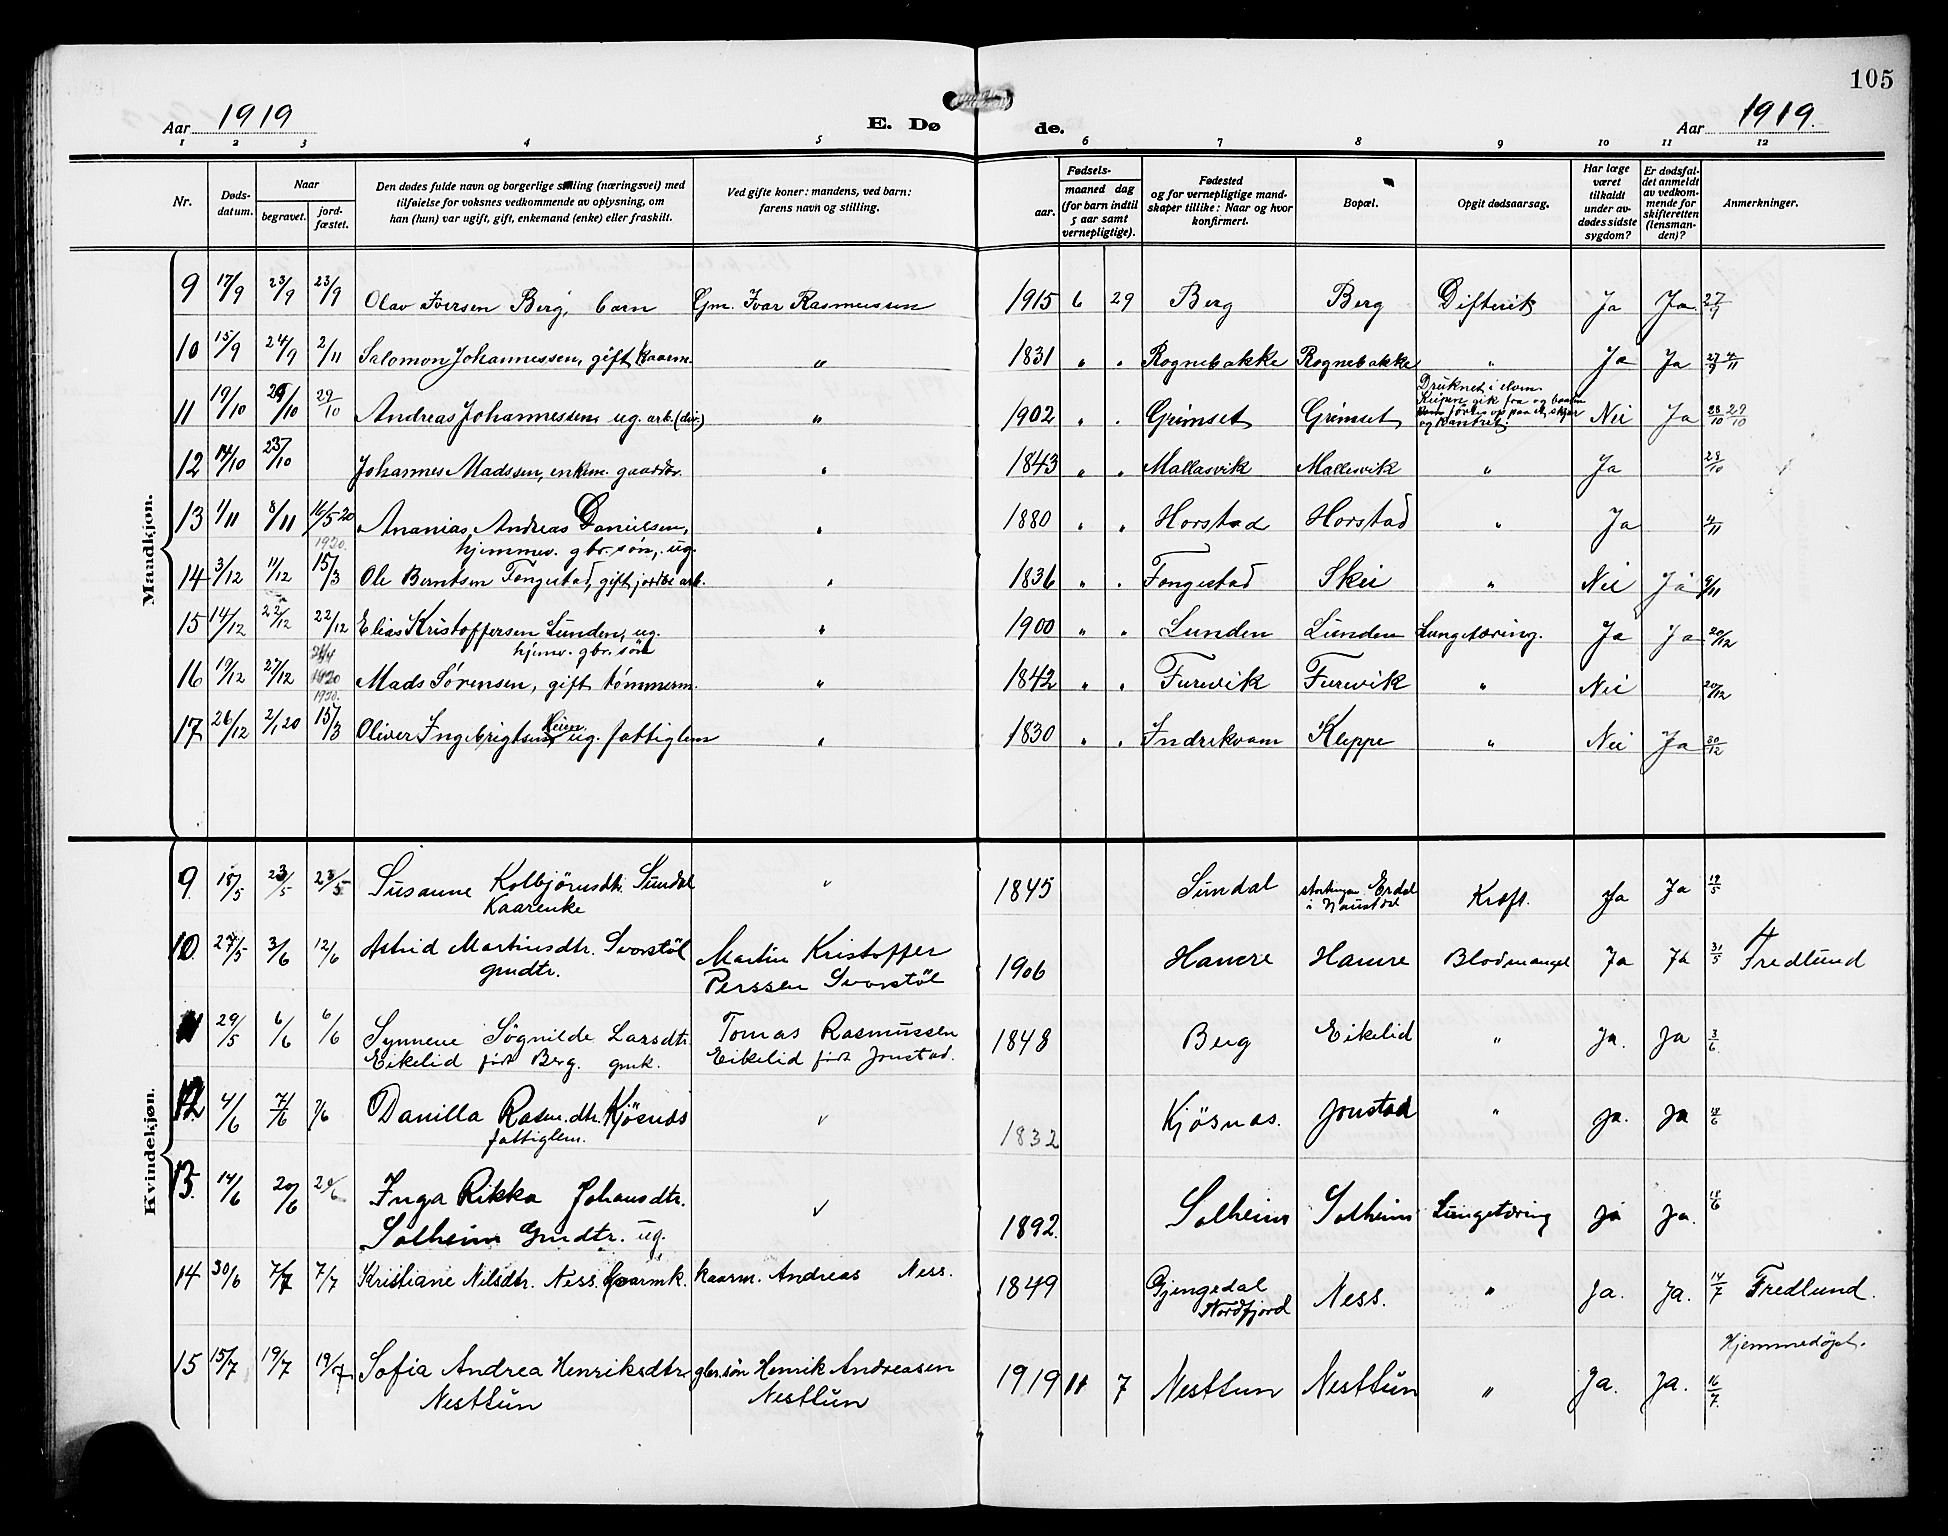 105
Aar 1919
E. Dø
de.
Aar 1919.
1 2 3 4 5 6 7 8 9 10 11 12
Nr.
Døds-
datum.
Naar
begravet.
jord-
fæstet.
Den dødes fulde navn og borgerlige stilling (næringsvei) med
tilføielse for voksnes vedkommende av oplysning, om
han (hun) var ugift, gift, enkemand (enke) eller fraskilt.
Ved gifte koner: mandens, ved barn:
farens navn og stilling.
Fødsels-
aar.
maaned dag
(for barn indtil
5 aar samt
vernepligtige).
Fødested
og for vernepligtige mand-
skaper tillike: Naar og hvor
konfirmert.
Bopæl.
Opgit dødsaarsag.
Har læge
været
tilkaldt
under av-
dødes sidste
sygdom?
Er dødsfal-
det anmeldt
av vedkom-
mende for
skifteretten
(lensman-
den)?
Anmerkninger.
Mandkjøn.
9 17/9 23/9 23/9 Olav Iversen Berg, barn Gm. Ivar Rasmussen 1915 6 29 Berg Berg Difterik Ja Ja 27/9
10 15/9 24/9 2/11 Salomon Johannessen, gift Kaarm. " 1831 " " Rognebakke Rognebakke " Ja Ja 27/9 4/11
11 19/10 29/10 29/10 Andreas Johannessen ug. arb. (div.) " 1902 " . Grimset Grimset Druknet i elven. Keipen gik fra og baaten førtes op paa et skjær og kantret. Nei Ja 28/10 29/10
12 14/10 23/10 Johannes Madssen, enkem. gaardbr. " 1843 " " Mallasvik Mallasvik " Ja 28/10
13 1/11 8/11 16/5 20 Ananias Andreas Danielsen,
hjemmev. gbr. søn, ug. " 1880 " " Horstad Horstad " Ja 4/11
14 3/12 11/12 1920. 15/3 Ole Berntsen Fongestad, gift, jordbr. arb. " 1836 " . Fongestad Skei " Nei Ja 9/11
15 14/12 22/12 22/12 Elias Kristoffersen Lunden, ug.
hjemv. gbr. søn " 1900 " " Lunden Lunden Lungetæring. Ja Ja 20/12
16 19/12 27/12 24/4 1920 Mads Sørensen, gift tømmerm. " 1842 " " Furevik Furevik " Nei 20/12
17 26/12 2/1 20 1920. 15/3 Oliver Ingebrigtsen Heien ug. fattiglem " 1830 " . Indrekvam Kleppe " Nei Ja 30/12
Kvindekjøn.
9. 18/5 23/5 23/5 Susanne Kolbjørnsdtr. Sundal
Kaarenke " 1845 Sundal Erdal
i Naustdal Kræft. Ja Ja 19/5
10 27/5 3/6 12/6 Astrid Martinsdtr. Svorstøl
gmdtr. Martin Kristoffer
Perssen Svorstøl 1906 Hamre Hamre Blodmangel Ja Ja 31/5 Fredlund
11 29/5 6/6 6/6 Synneve Søgnilde Larsdtr.
Eikelid født Berg. gmk. Tomas Rasmussen
Eikelid født Jonstad. 1848 Berg Eikelid " Ja. Ja 3/6
12. 4/6 7/6 7/6 Danilla Rasm.dtr. Kjøsnæs
fattiglem. 1832 Kjøsnas. Jonstad " Ja. Ja 18/6
13. 14/6 20/6 20/6 Inga Rikka Johansdtr.
Solheim Gmdtr. ug. 1892. Solheim Solheim Lungetæring Ja Ja. 18/6
14 30/6 7/7 7/7 Kristiane Nilsdtr. Ness. Kaarmk. Kaarm. Andreas Ness. 1849 Gjengedal
Nordfjord Ness. " Ja. Ja. 14/7 Fredlund.
15 15/7 19/7 19/7 Sofia Andrea Henriksdtr.
Nesttun gbr. søn Henrik Andreasen
Nesttun 1919 11 7 Nesttun Nesttun " Ja. Ja. 16/7. Hjemmedøpt.